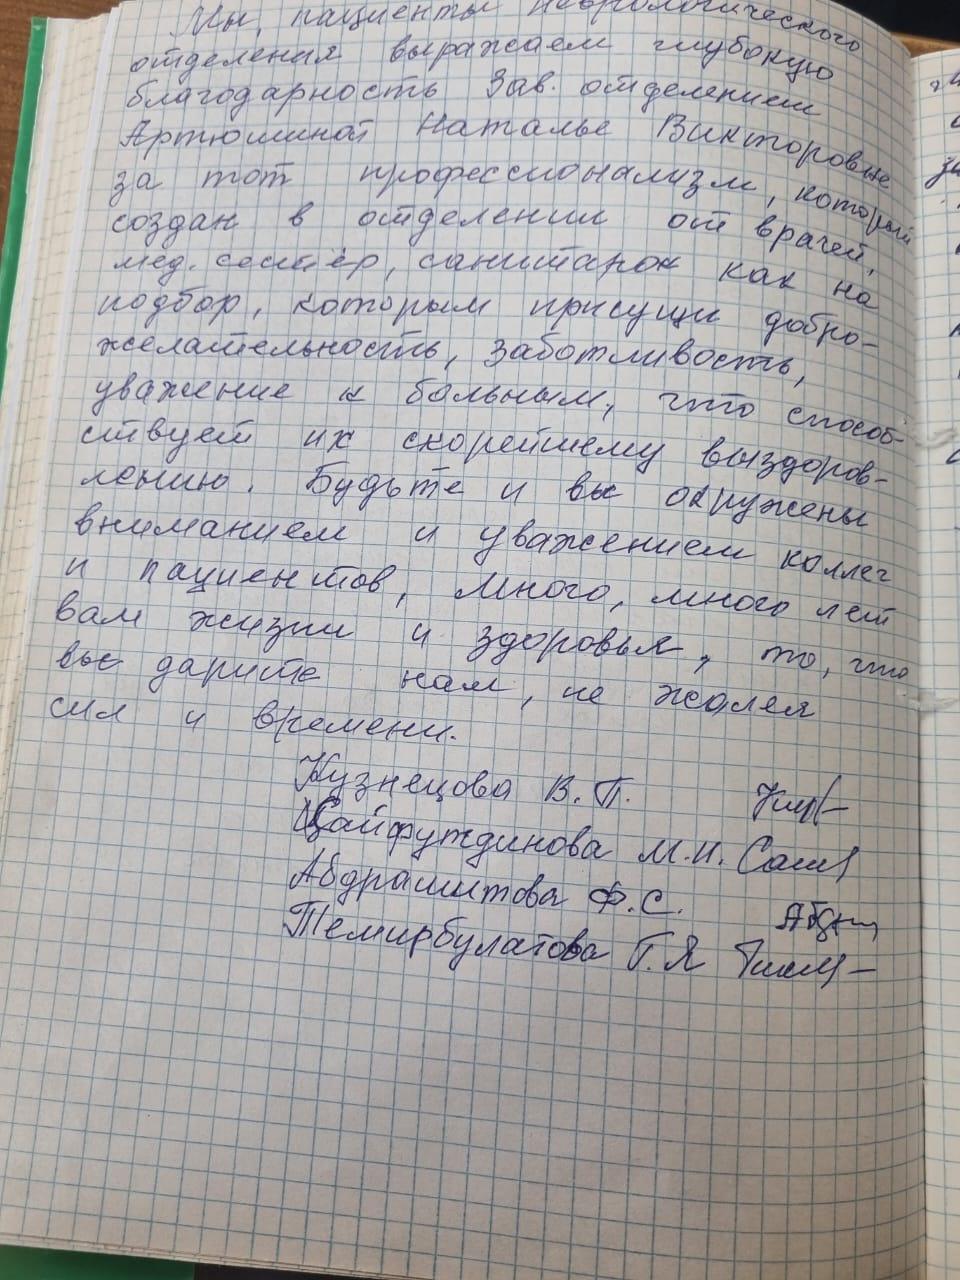 Мы, пациенты неврологического
отделения выражаем глубокую
благодарность Зав. отделением
Артюшиной Наталье Викторовне
за тот профессионализм, который
создан в отделении от врачей,
мед. сестёр, санитарок как на
подбор, которым присущи добро-
желательность, заботливость,
уважение к больным, что способ-
ствует их скорейшему выздоров-
лению. Будьте и вы окружены
вниманием и уважением коллег
и пациентов, много, много лет
вам жизни и здоровья, то, что
вы дарите нам, не жалея
сил и времени.
Кузнецова В.П.
Сайфутдинова М.И.
Абдрашитова Ф.С.
Темирбулатова Г.Я